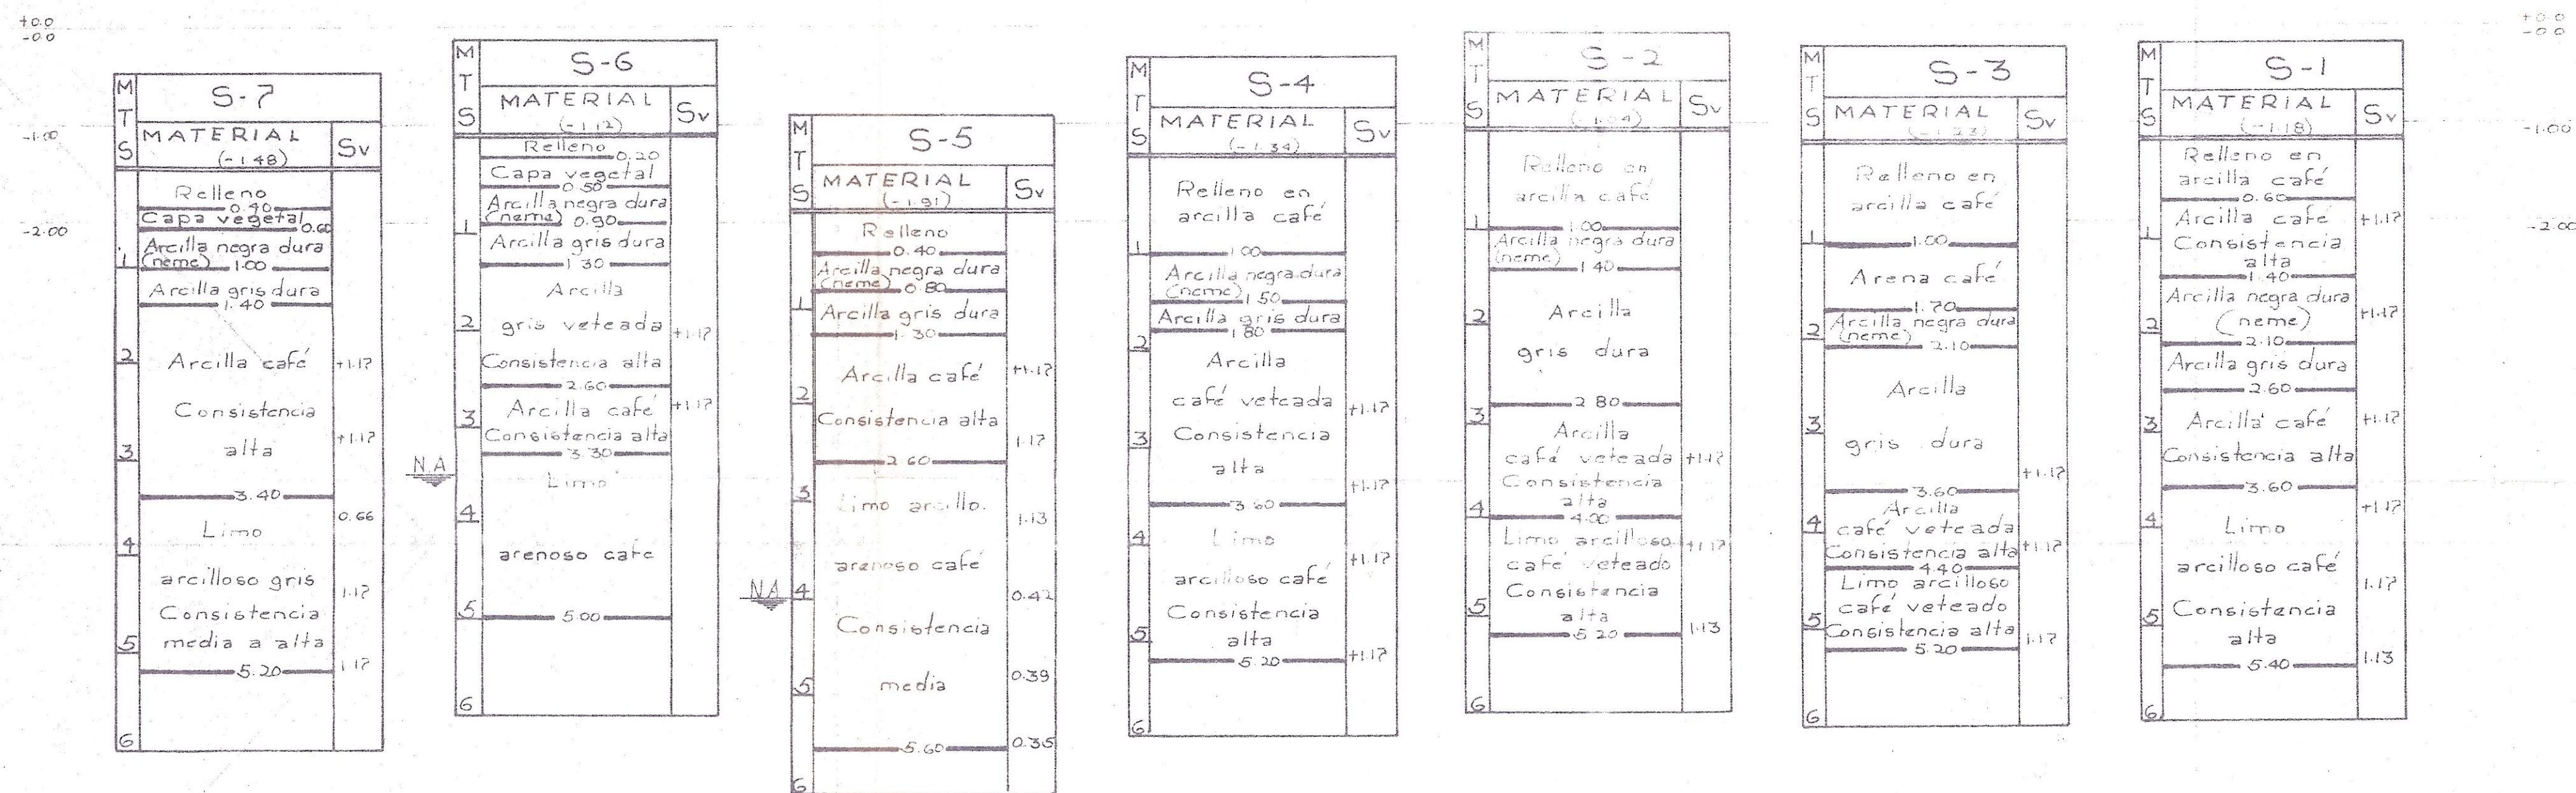 +0.0
-0.0
-1.00
-2.00
M
T
S
S-7
MATERIAL
(-1.48)
Sv
Relleno
0.40
Capa vegetal
0.60
Arcilla negra dura
(neme) 1.00
Arcilla gris dura
1.40
Arcilla café
Consistencia
alta
3.40
Limo
arcilloso gris
Consistencia
media a alta
5.20
1
2
3
4
5
6
+1.17
+1.17
0.66
1.17
1.17
N.A
M
T
S
S-6
MATERIAL
(-1.12)
Sv
Relleno
0.20
Capa vegetal
0.50
Arcilla negra dura
(neme) 0.90
Arcilla gris dura
1.30
Arcilla
gris veteada
Consistencia alta
2.60
Arcilla café
Consistencia alta
3.30
Limo
arenoso cafe
5.00
1
2
3
4
5
6
+1.17
+1.17
N.A
M
T
S
S-5
MATERIAL
(-1.91)
Sv
Relleno
0.40
Arcilla negra dura
(neme) 0.80
Arcilla gris dura
1.30
Arcilla café
Consistencia alta
2.60
Limo arcillo.
arenoso café
Consistencia
media
5.60
1
2
3
4
5
6
+1.17
1.17
1.13
0.42
0.39
0.35
M
T
S
S-4
MATERIAL
(-1.34)
Sv
Relleno en
arcilla café
1.00
Arcilla negra dura
(neme) 1.50
Arcilla gris dura
1.80
Arcilla
café veteada
Consistencia
alta
3.60
Limo
arcilloso café
Consistencia
alta
5.20
1
2
3
4
5
6
+1.17
+1.17
+1.17
+1.17
M
T
S
S-2
MATERIAL
Sv
Relleno en
arcilla café
1.00
Arcilla negra dura
(neme)
1.40
Arcilla
gris dura
2.80
Arcilla
café veteada
Consistencia
alta
4.00
Limo arcilloso
café veteado
Consistencia
alta
5.20
1
2
3
4
5
6
+1.17
+1.17
1.13
M
T
S
S-3
MATERIAL
(-1.23)
Sv
Relleno en
arcilla café
1.00
Arena café
1.70
Arcilla negra dura
(neme) 2.10
Arcilla
gris dura
3.60
Arcilla
café veteada
Consistencia alta
4.40
Limo arcilloso
café veteado
Consistencia alta
5.20
1
2
3
4
5
6
+1.17
+1.17
1.17
M
T
S
S-1
MATERIAL
(-1.18)
Sv
Relleno en
arcilla café
0.60
Arcilla café
Consistencia
alta
1.40
Arcilla negra dura
(neme)
2.10
Arcilla gris dura
2.60
Arcilla café
Consistencia alta
3.60
Limo
arcilloso café
Consistencia
alta
5.40
1
2
3
4
5
6
+1.17
+1.17
+1.17
+1.17
1.17
1.13
+0.0
-0.0
-1.00
-2.00